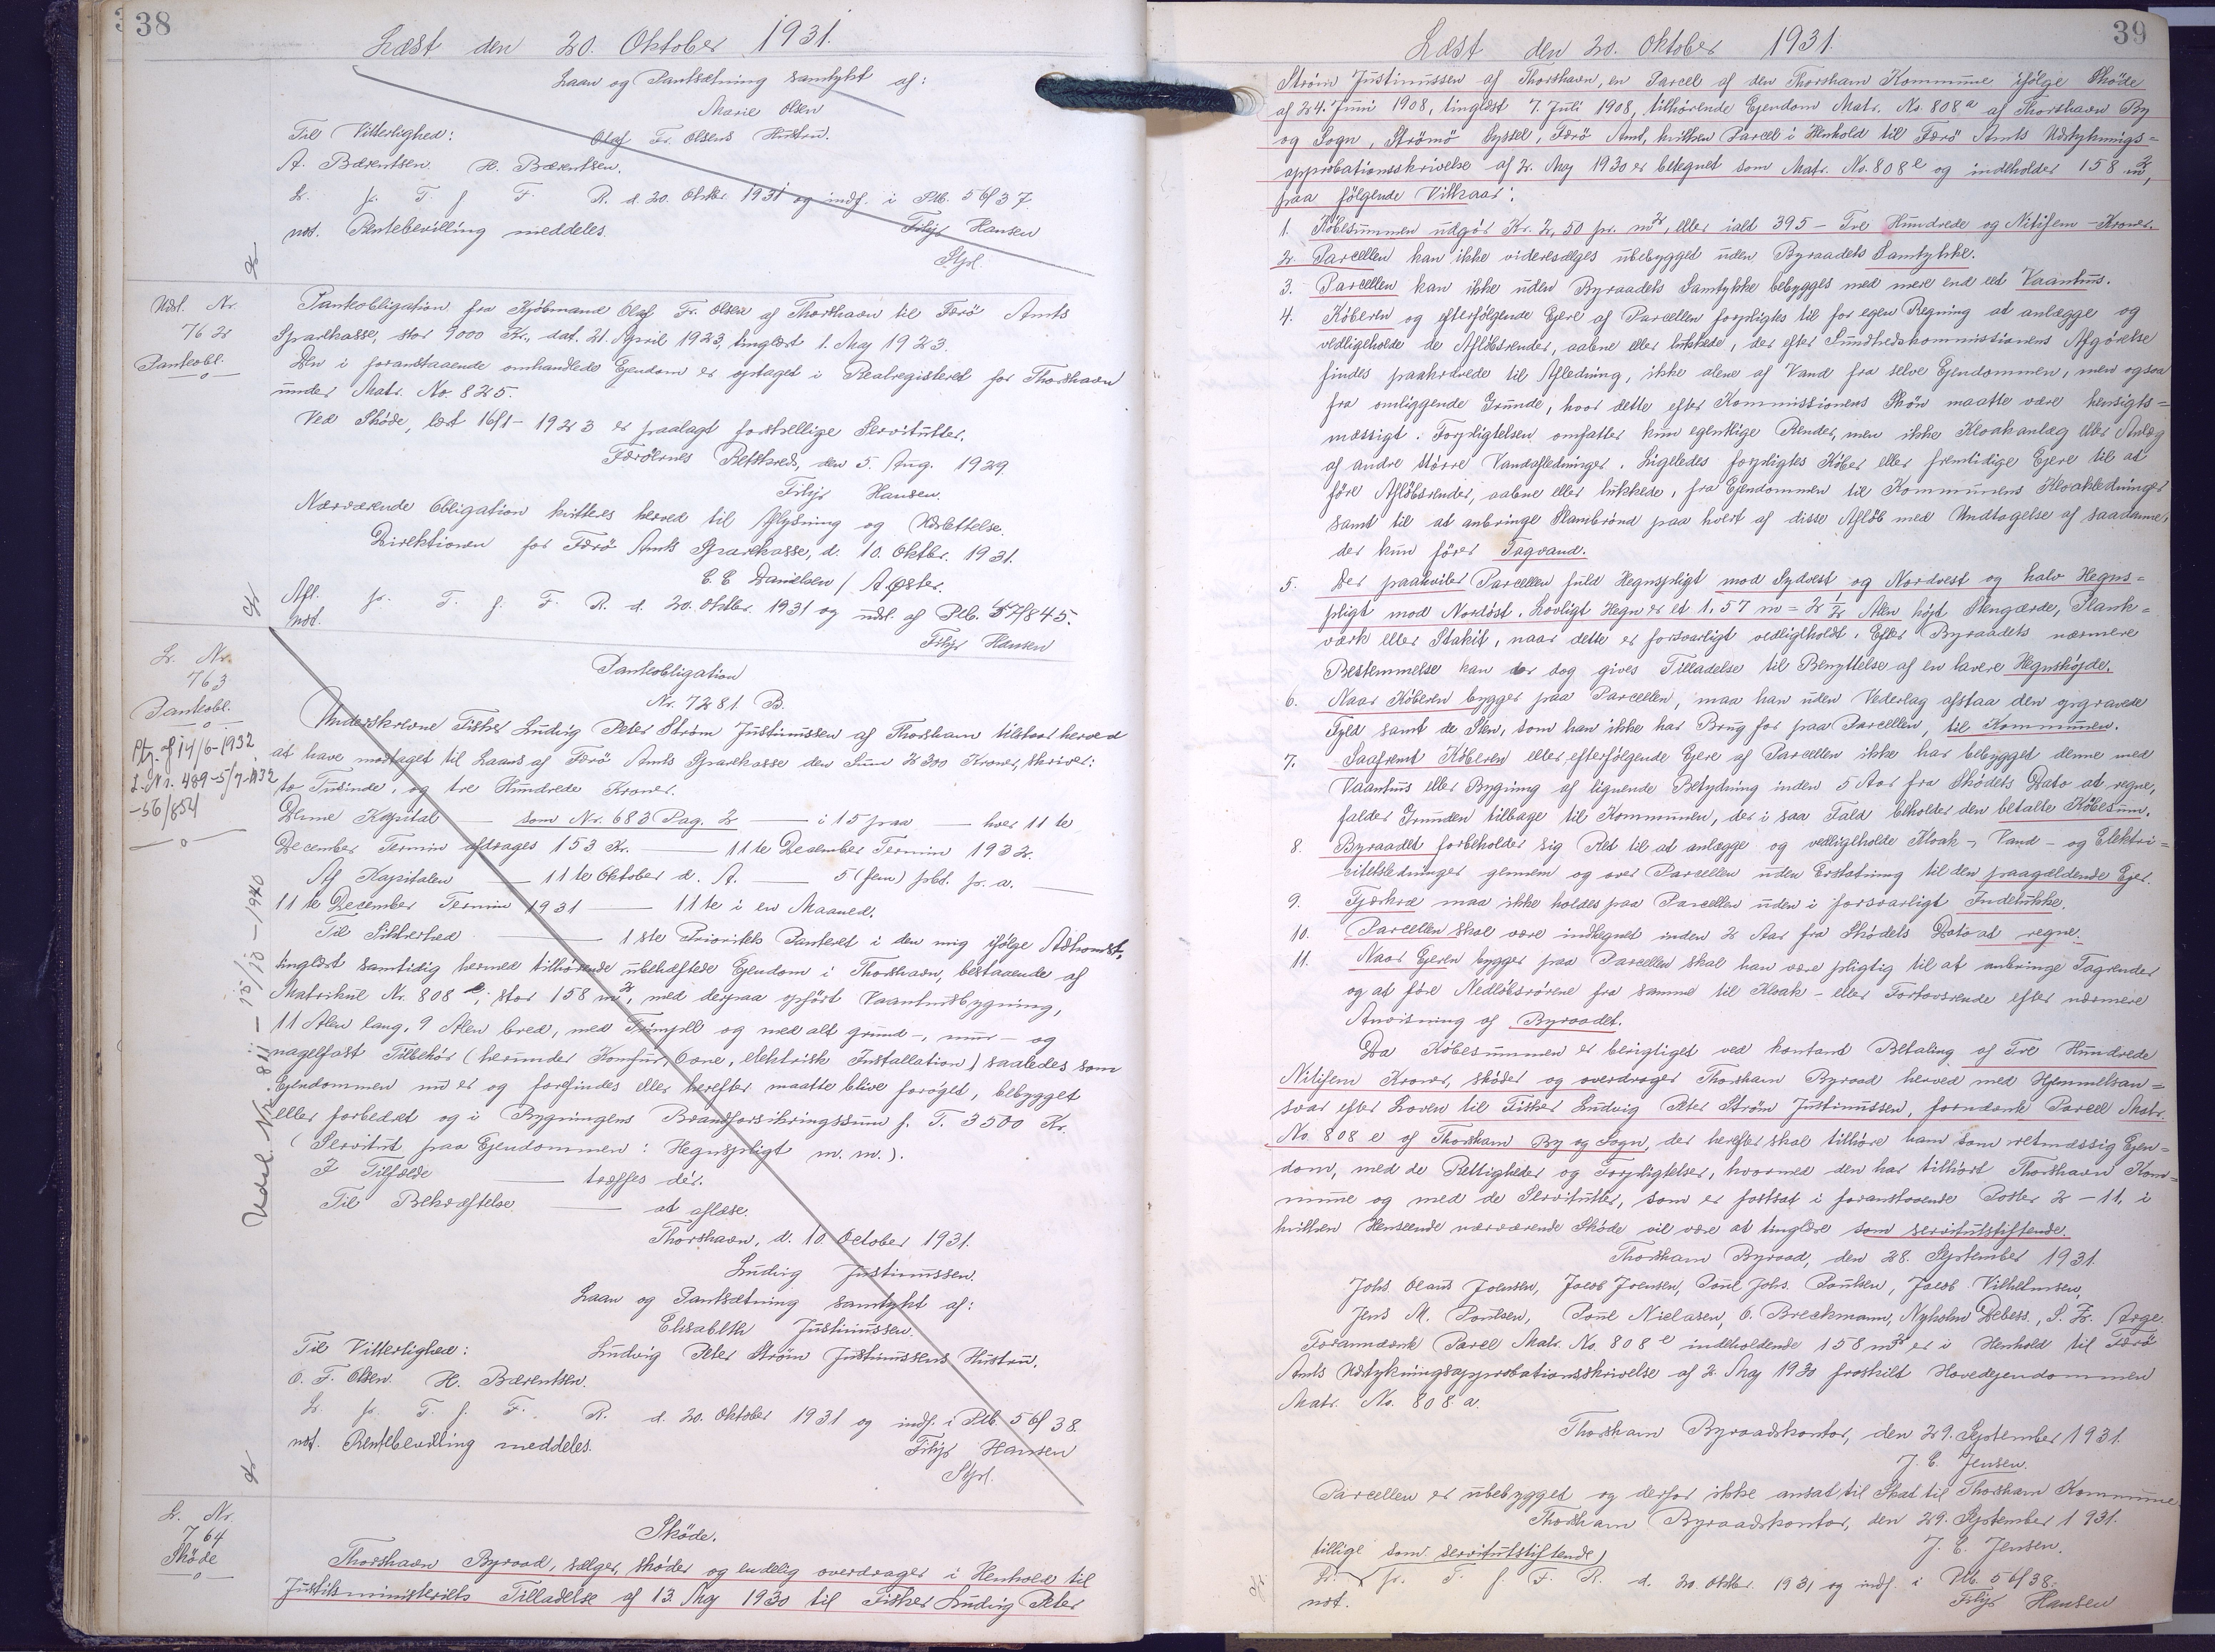 38
Læst den 20. Oktober 1931.
Laan og Pantsætning samtykt af:
Marie Olsen
Til Vitterlighed: Olaf Fr. Olsens Hustru.
A. Bærentsen. H. Bærentsen.
L. fr. T. f. F. R. d. 20. Oktbr. 1931 og indf. i Ptb. 56/37.
not. Rentebevilling meddeles. Filip Hansen
Stpl.
Udsl. Nr.
762
Panteobl.
Panteobligation fra Kjøbmand Olaf Fr. Olsen af Thorshavn til Færø Amts
Sparekasse, stor 9000 Kr., dat. 21. April 1923, tinglæst 1. Maj 1923.
Den i foranstaaende omhandlede Ejendom er optaget i Realregisteret for Thorshavn
under Matr. No. 825.
Ved Skøde, læst 16/1-1923 er paalagt forskellige Servitutter.
Færöernes Retskreds, den 5. Aug. 1929
Filip Hansen.
Nærværende Obligation kvitteres herved til Aflysning og Udslettelse.
Direktionen for Færö Amts Sparekasse, d. 10. Oktbr. 1931.
C. C. Danielsen / A. Øster.
Afl. fr. T. f. F. R. d. 20. Oktbr. 1931 og udsl. af Ptb. 57/845.
not. Filip Hansen
L. Nr.
763
Panteobl.
Ptg. af 14/6-1932
L. Nr. 489-5/7-1932
-56/854
Udsl. Nr. 811 - 15/10-1940
Panteobligation
Nr. 7281. B.
Underskrevne Fisker Ludvig Peter Strøm Justinussen af Thorshavn tilstaar herved
at have modtaget til Laans af Færö Amts Sparekasse den Sum 2300 Kroner, skriver:
to Tusinde, og tre Hundrede Kroner.
Denne Kapital — som Nr. 683 Pag. 2 — i 15 paa — hver 11te
December Termin afdrages 153 Kr. — 11te December Termin 1932.
Af Kapitalen — 11te Oktober d. A. — 5 (fem) pCt. p. a. —
11te December Termin 1931 — 11te i en Maaned.
Til Sikkerhed — 1ste Prioritets Panteret i den mig ifølge Adkomst,
tinglæst samtidig hermed tilhørende ubehæftede Ejendom i Thorshavn, bestaaende af
Matrikul Nr. 808 e, stor 158 m², med derpaa opført Vaaningsbygning,
11 Alen lang, 9 Alen bred, med Trempel og med alt grund-, mur- og
nagelfast Tilbehör (herunder Komfur, Ovne, elektrisk Installation) saaledes som
Ejendommen nu er og forefindes eller herefter maatte blive forøget, bebygget
eller forbedret og i Bygningens Brandforsikringssum f. T. 3500 Kr.
(Servitut paa Ejendommen: Hegnspligt m. m.).
I Tilfælde — træffes dér.
Til Bekræftelse — at aflæse.
Thorshavn, d. 10. October 1931.
Ludvig Justinussen.
Laan og Pantsætning samtykt af:
Elisabeth Justinussen.
Til Vitterlighed: Ludvig Peter Strøm Justinussens Hustru.
O. F. Olsen. H. Bærentsen.
L. fr. T. f. F. R. d. 20. Oktober 1931 og indf. i Ptb. 56/38.
not. Rentebevilling meddeles. Filip Hansen
Stpl.
L. Nr.
764
Skøde
Skøde.
Thorshavn Byraad, sælger, skøder og endelig overdrager i Henhold til
Justitsministeriets Tilladelse af 13. Maj 1930 til Fisker Ludvig Peter
39
Læst den 20. Oktober 1931.
Strøm Justinussen af Thorshavn, en Parcel af den Thorshavn Kommune ifølge Skøde
af 24. Juni 1908, tinglæst 7. Juli 1908, tilhørende Ejendom Matr. No. 808 a af Thorshavn By
og Sogn, Strömö Syssel, Færö Amt, hvilken Parcel i Henhold til Færö Amts Udstyknings-
approbationsskrivelse af 2. Maj 1930 er betegnet som Matr. No. 808 e og indeholder 158 m²,
paa følgende Vilkaar:
1. Købesummen udgör Kr. 2,50 pr. m², eller ialt 395 - Tre Hundrede og Nitifem - Kroner.
2. Parcellen kan ikke videresælges ubebygget uden Byraadets Samtykke.
3. Parcellen kan ikke uden Byraadets Samtykke bebygges med mere end eet Vaanhus.
4. Köberen og efterfølgende Ejere af Parcellen forpligtes til for egen Regning at anlægge og
vedligeholde de Afløbsrender, aabne eller lukkede, der efter Sundhedskommissionens Afgørelse
findes paakrævede til Afledning, ikke alene af Vand fra selve Ejendommen, men ogsaa
fra omliggende Grunde, hvor dette efter Kommissionens Skön maatte være hensigts-
mæssigt. Forpligtelsen omfatter kun egentlige Render, men ikke Kloakanlæg eller Anlæg
af andre större Vandafledninger. Ligeledes forpligtes Köber eller fremtidige Ejere til at
före Afløbsrender, aabne eller lukkede, fra Ejendommen til Kommunens Kloakledninger
samt til at anbringe Slambrönd paa hvert af disse Afløb med Undtagelse af saadanne,
der kun förer Tagvand.
5. Der paahviler Parcellen fuld Hegnspligt mod Sydvest og Nordvest og halv Hegns-
pligt mod Nordöst. Lovligt Hegn er et 1,57 m = 2 1/2 Alen højt Stengærde, Plank-
værk eller Stakit, naar dette er forsvarligt vedligeholdt. Efter Byraadets nærmere
Bestemmelse kan der dog gives Tilladelse til Benyttelse af en lavere Hegnshöjde.
6. Naar Köberen bygger paa Parcellen, maa han uden Vederlag afstaa den opgravede
Fyld samt de Sten, som han ikke har Brug for paa Parcellen, til Kommunen.
7. Saafremt Köberen eller efterfølgende Ejere af Parcellen ikke har bebygget denne med
Vaanhus eller Bygning af lignende Betydning inden 5 Aar fra Sködets Dato at regne,
falder Grunden tilbage til Kommunen, der i saa Fald beholder den betalte Købesum.
8. Byraadet forbeholder sig Ret til at anlægge og vedligeholde Kloak-, Vand- og Elektri-
citetsledninger gennem og over Parcellen uden Erstatning til den paagældende Ejer.
9. Fjerkræ maa ikke holdes paa Parcellen uden i forsvarligt Indelukke.
10. Parcellen skal være indhegnet inden 2 Aar fra Skødets Dato at regne.
11. Naar Ejeren bygger paa Parcellen skal han være pligtig til at anbringe Tagrender
og at före Nedløbsrørene fra samme til Kloak- eller Fortovsrende efter nærmere
Anvisning af Byraadet.
Da Købesummen er berigtiget ved kontant Betaling af Tre Hundrede
Nitifem Kroner, skøder og overdrager Thorshavn Byraad herved med Hjemmelsan-
svar efter Loven til Fisker Ludvig Peter Strøm Justinussen, fornævnte Parcel Matr.
No. 808 e af Thorshavn By og Sogn, der herefter skal tilhöre ham som retmæssig Ejen-
dom, med de Rettigheder og Forpligtelser, hvormed den har tilhört Thorshavn Kom-
mune og med de Servitutter, som er fastsat i foranstaaende Poster 2-11, i
hvilken Henseende nærværende Skøde vil være at tinglæse som servitutstiftende.
Thorshavn Byraad, den 28. September 1931.
Johs. Olaus Joensen, Jacob Joensen, Poul Johs. Poulsen, Jacob Vilhelmsen,
Jens M. Poulsen, Poul Nielasen, O. Breckmann, Nyholm Debess, S. Zr. Arge.
Forannævnte Parcel Matr. No. 808 e indeholdende 158 m² er i Henhold til Færö
Amts Udstykningsapprobationsskrivelse af 2. Maj 1930 fraskilt Hovedejendommen
Matr. No. 808 a.
Thorshavn Byraadskontor, den 29. September 1931.
J. C. Jensen.
Parcellen er ubebygget og derfor ikke ansat til Skat til Thorshavn Kommune.
Thorshavn Byraadskontor, den 29. September 1931.
J. C. Jensen.
tillige som servitutstiftende)
L. fr. T. f. F. R. d. 20. Oktbr. 1931 og indf. i Ptb. 56/38.
not. Filip Hansen